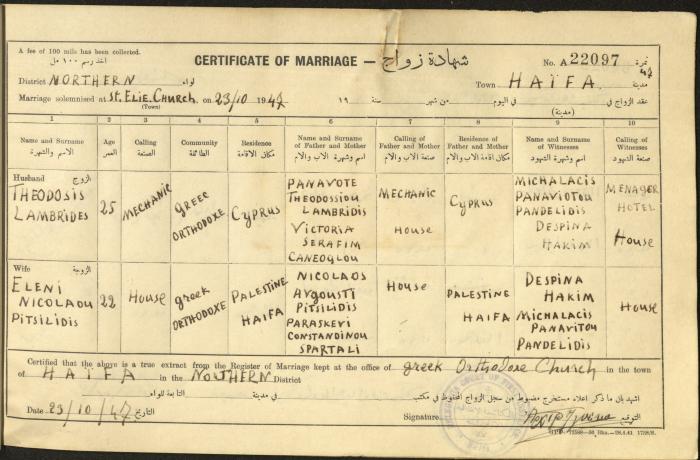 A fee of 100 mils has been collected.
أخذ رسم ١٠٠ مل
CERTIFICATE OF MARRIAGE — شهادة زواج
No. A 22097 نمرة
47
District NORTHERN لواء
Town HAÏFA. مدينة
Marriage solemnised at St. Elie. Church. on 23/10 1947
(Town)
١٩ سنة من شهر في اليوم عقد الزواج في
(مدينة)
1 2 3 4 5 6 7 8 9 10
Name and Surname Age Calling Community Residence Name and Surname of Father and Mother Calling of Father and Mother Residence of Father and Mother Name and Surname of Witnesses Calling of Witnesses
الاسم والشهرة العمر الصنعة الطائفة مكان الاقامة اسم وشهرة الاب والام صنعة الاب والام مكان اقامة الاب والام اسم وشهرة الشهود صنعة الشهود
Husband الزوج
THEODOSIS LAMBRIDES 25 MECHANIC GREEC ORTHODOXE CYPRUS
PANAVOTE THEODOSSIOU LAMBRIDIS
VICTORIA SERAFIM CANEOGLOU
MECHANIC
House
CYPRUS
MICHALACIS PANAVIOTOU PANDELIDIS
DESPINA HAKIM
MENAGER HOTEL
House
Wife الزوجة
ELENI NICOLAOU PITSILIDIS 22 House greek ORTHODOXE PALESTINE HAIFA
NICOLAOS AVGOUSTI PITSILIDIS
PARASKEVI CONSTANDINOU SPARTALI
House
PALESTINE HAIFA
DESPINA HAKIM
MICHALACIS PANAVITOU PANDELIDIS
House
Certified that the above is a true extract from the Register of Marriage kept at the office of greek Orthodoxe Church in the town
of HAÏFA in the NORTHERN District
اشهد بان ما ذكر اعلاه مستخرج مضبوط من سجل الزواج المحفوظ في مكتب
في مدينة التابعة للواء
Date 23/10/47 التاريخ
Signature التوقيع